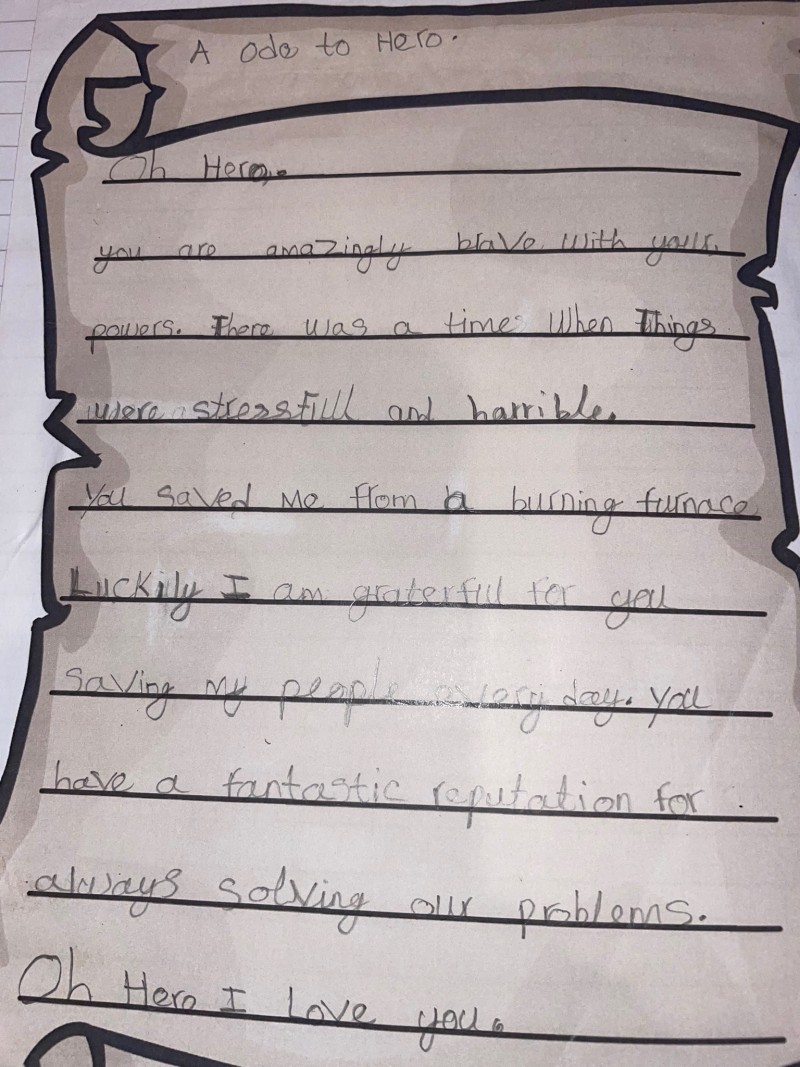 A Ode to Hero.
Oh Hero.
you are amazingly brave with your
powers. There was a time when Things
were stressfull and harrible.
You saved me from a burning furnace
Luckily I am graterful for you
saving my people every day. You
have a fantastic reputation for
always solving our problems.
Oh Hero I Love you.